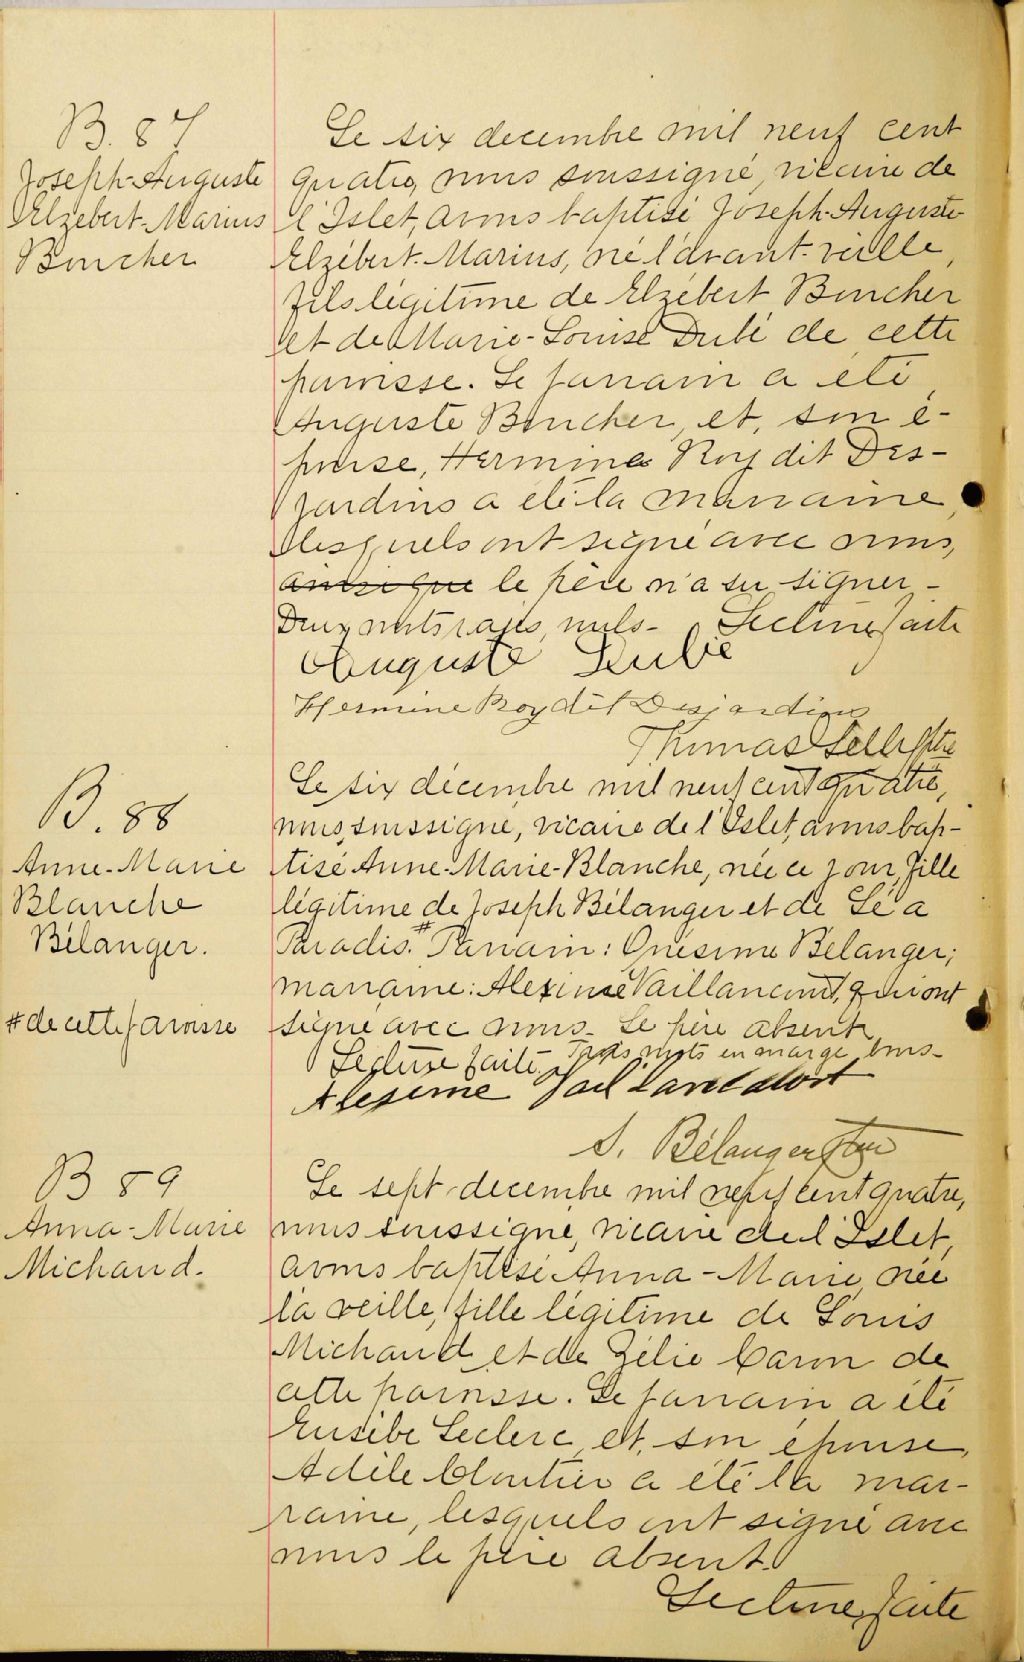 B. 87
Joseph-Auguste
Elzébert-Marius
Boucher
Le six decembre mil neuf cent
quatre, nous soussigné, vicaire de
l'Islet, avons baptisé Joseph-Auguste-
Elzébert-Marius, né l'avant-veille,
fils légitime de Elzébert Boucher
et de Marie-Louise Dubé de cette
paroisse. Le parrain a été
Auguste Boucher, et, son é-
pouse, Hermine Roy dit Des-
jardins a été la marraine,
lesquels ont signé avec nous,
ainsi que le père n'a su signer -
Deux mots rayés, nuls - Lecture faite
Auguste Dubé
Hermine Roy dit Desjardins
Thomas Ptre
B. 88
Anne-Marie
Blanche
Bélanger.
# de cette paroisse
Le six décembre mil neuf cent quatre,
nous, soussigné, vicaire de l'Islet, avons bap-
tisé Anne-Marie-Blanche, née ce jour, fille
légitime de Joseph Bélanger et de Léa
Paradis. # Parrain: Onésime Bélanger;
marraine: Alexina Vaillancourt, qui ont
signé avec nous - Le père absent
Lecture faite. Trois mots en marge, bons -
Alexime
S. Bélanger Ptre
B 89
Anna-Marie
Michaud.
Le sept decembre mil neuf cent quatre,
nous soussigné, vicaire de l'Islet,
avons baptisé Anna-Marie, née
la veille, fille légitime de Louis
Michaud et de Zélie Caron de
cette paroisse. Le parrain a été
Eusèbe Leclerc, et, son épouse,
Adèle Cloutier a été la mar-
raine, lesquels ont signé avec
nous le père absent.
Lecture faite